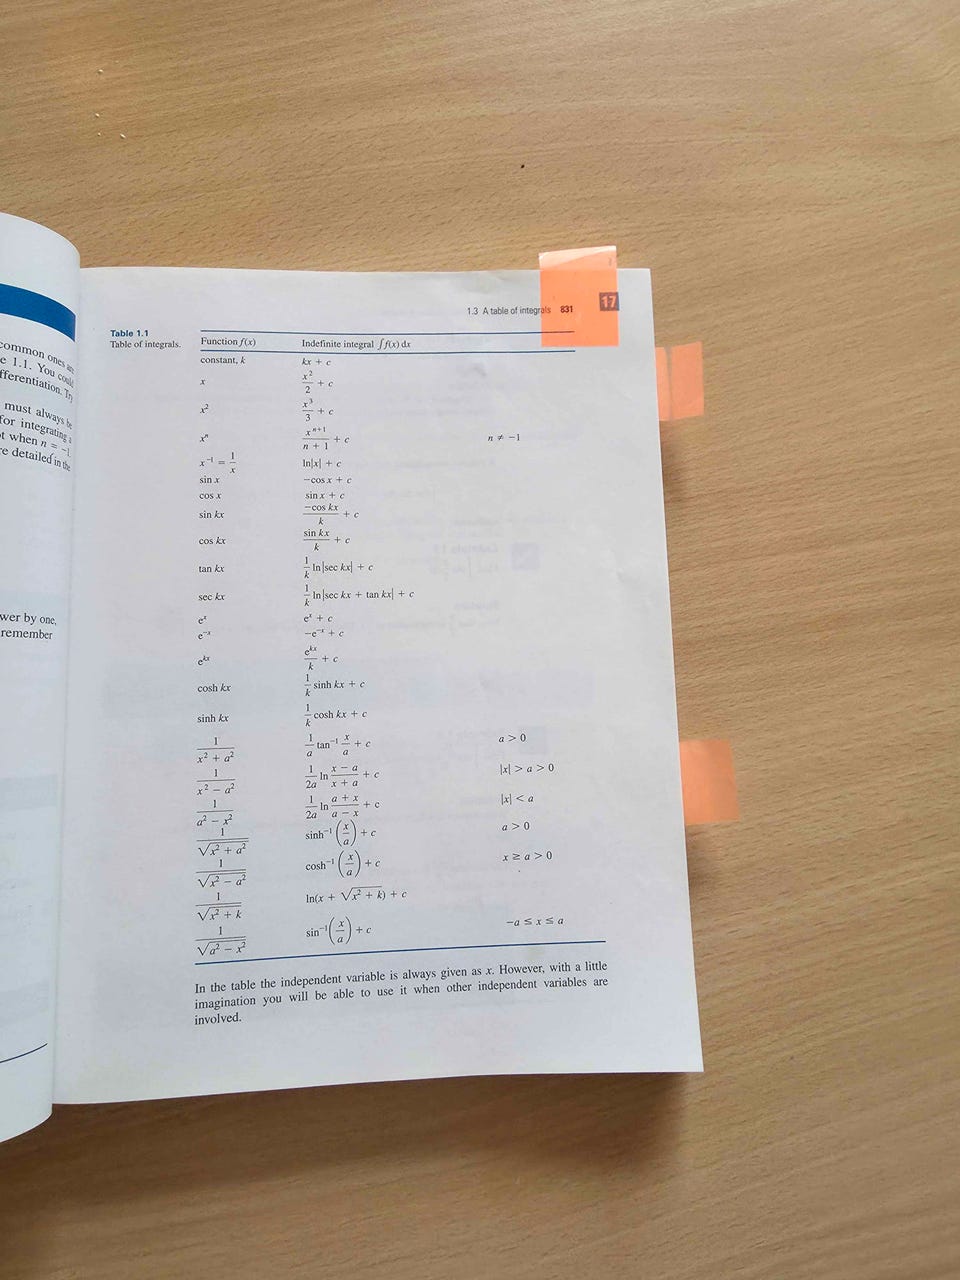 common ones are
e 1.1. You could
fferentiation. Try
must always be
for integrating a
t when n = −1
re detailed in the
wer by one,
remember
1.3 A table of integrals 831
17
Table 1.1
Table of integrals.
Function f(x) Indefinite integral ∫f(x) dx
constant, k kx + c
x x²/2 + c
x² x³/3 + c
xⁿ xⁿ⁺¹/(n + 1) + c n ≠ −1
x⁻¹ = 1/x ln|x| + c
sin x −cos x + c
cos x sin x + c
sin kx −cos kx/k + c
cos kx sin kx/k + c
tan kx 1/k ln|sec kx| + c
sec kx 1/k ln|sec kx + tan kx| + c
eˣ eˣ + c
e⁻ˣ −e⁻ˣ + c
eᵏˣ eᵏˣ/k + c
cosh kx 1/k sinh kx + c
sinh kx 1/k cosh kx + c
1/(x² + a²) 1/a tan⁻¹ x/a + c a > 0
1/(x² − a²) 1/2a ln (x − a)/(x + a) + c |x| > a > 0
1/(a² − x²) 1/2a ln (a + x)/(a − x) + c |x| < a
1/√(x² + a²) sinh⁻¹(x/a) + c a > 0
1/√(x² − a²) cosh⁻¹(x/a) + c x ≥ a > 0
1/√(x² + k) ln(x + √(x² + k)) + c
1/√(a² − x²) sin⁻¹(x/a) + c −a ≤ x ≤ a
In the table the independent variable is always given as x. However, with a little
imagination you will be able to use it when other independent variables are
involved.